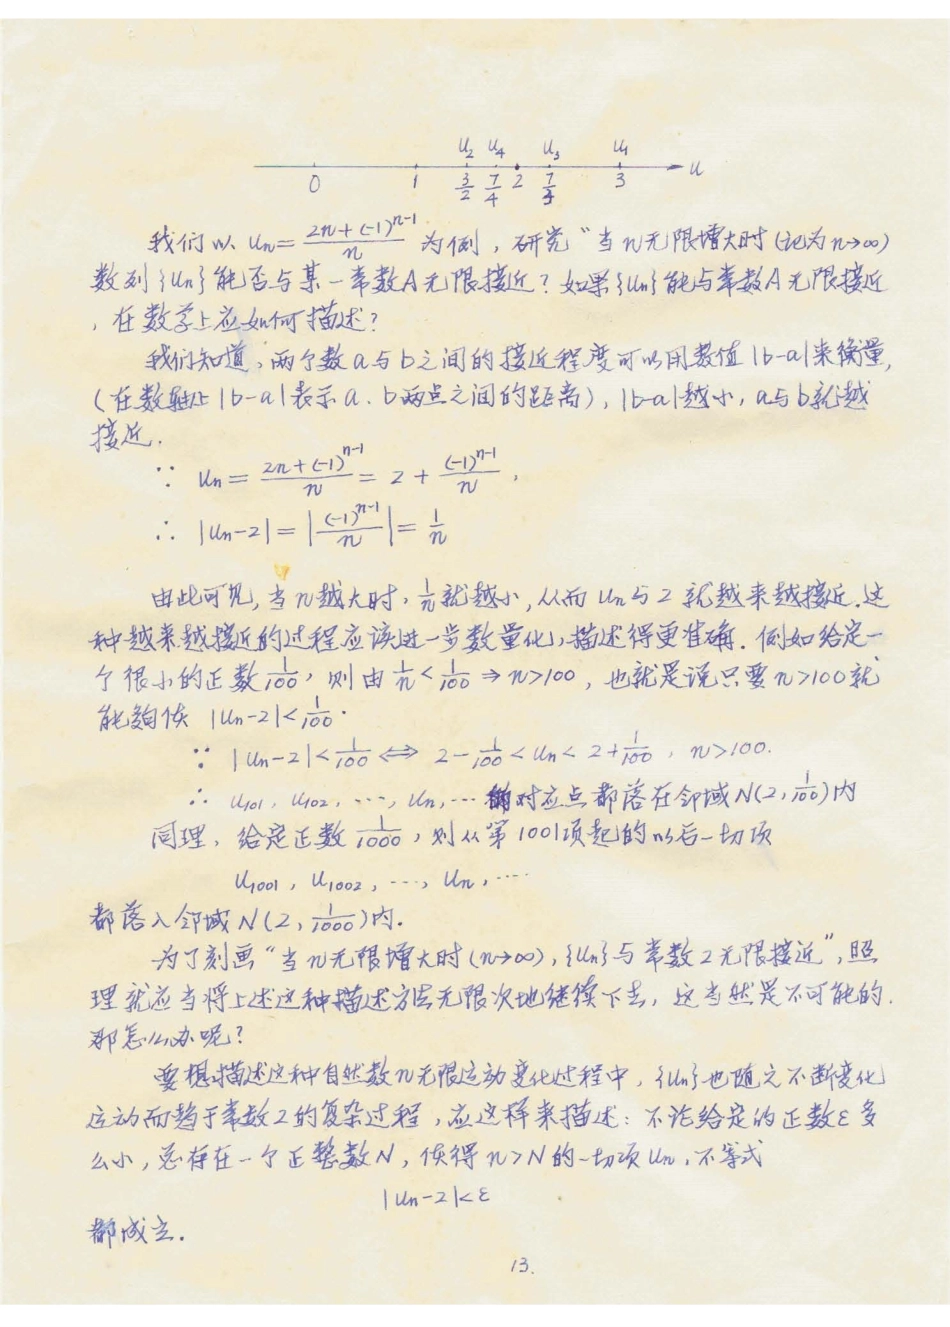 u₂ u₄ u₃ u₁
0 1 3/2 7/4 2 7/3 3 u
我们以 uₙ = (2n+(-1)ⁿ⁻¹)/n 为例，研究“当n无限增大时(记为n→∞)
数列{uₙ}能否与某一常数A无限接近？如果{uₙ}能与常数A无限接近
，在数学上应如何描述？
我们知道，两个数a与b之间的接近程度可以用数值|b-a|来衡量，
(在数轴上|b-a|表示a、b两点之间的距离)，|b-a|越小，a与b就越
接近.
∵ uₙ = (2n+(-1)ⁿ⁻¹)/n = 2 + (-1)ⁿ⁻¹/n ，
∴ |uₙ-2| = |(-1)ⁿ⁻¹/n| = 1/n
由此可见，当n越大时，1/n就越小，从而uₙ与2就越来越接近.这
种越来越接近的过程应该进一步数量化，描述得更准确. 例如给定一
个很小的正数1/100，则由1/n<1/100⇒n>100，也就是说只要n>100就
能夠使 |uₙ-2|<1/100.
∵ |uₙ-2|<1/100 ⟺ 2-1/100<uₙ<2+1/100，n>100.
∴ u₁₀₁，u₁₀₂，…，uₙ，… 的对应点都落在邻域N(2，1/100)内
同理，给定正数1/1000，则从第1001项起的以后一切项
u₁₀₀₁，u₁₀₀₂，…，uₙ，…
都落入邻域N(2，1/1000)内.
为了刻画“当n无限增大时(n→∞)，{uₙ}与常数2无限接近”，照
理就应当将上述这种描述方法无限次地继续下去，这当然是不可能的.
那怎么办呢？
要想描述这种自然数n无限运动变化过程中，{uₙ}也随之不断变化
运动而趋于常数2的复杂过程，应这样来描述：不论给定的正数ε多
么小，总存在一个正整数N，使得n>N的一切项uₙ，不等式
|uₙ-2|<ε
都成立.
13.